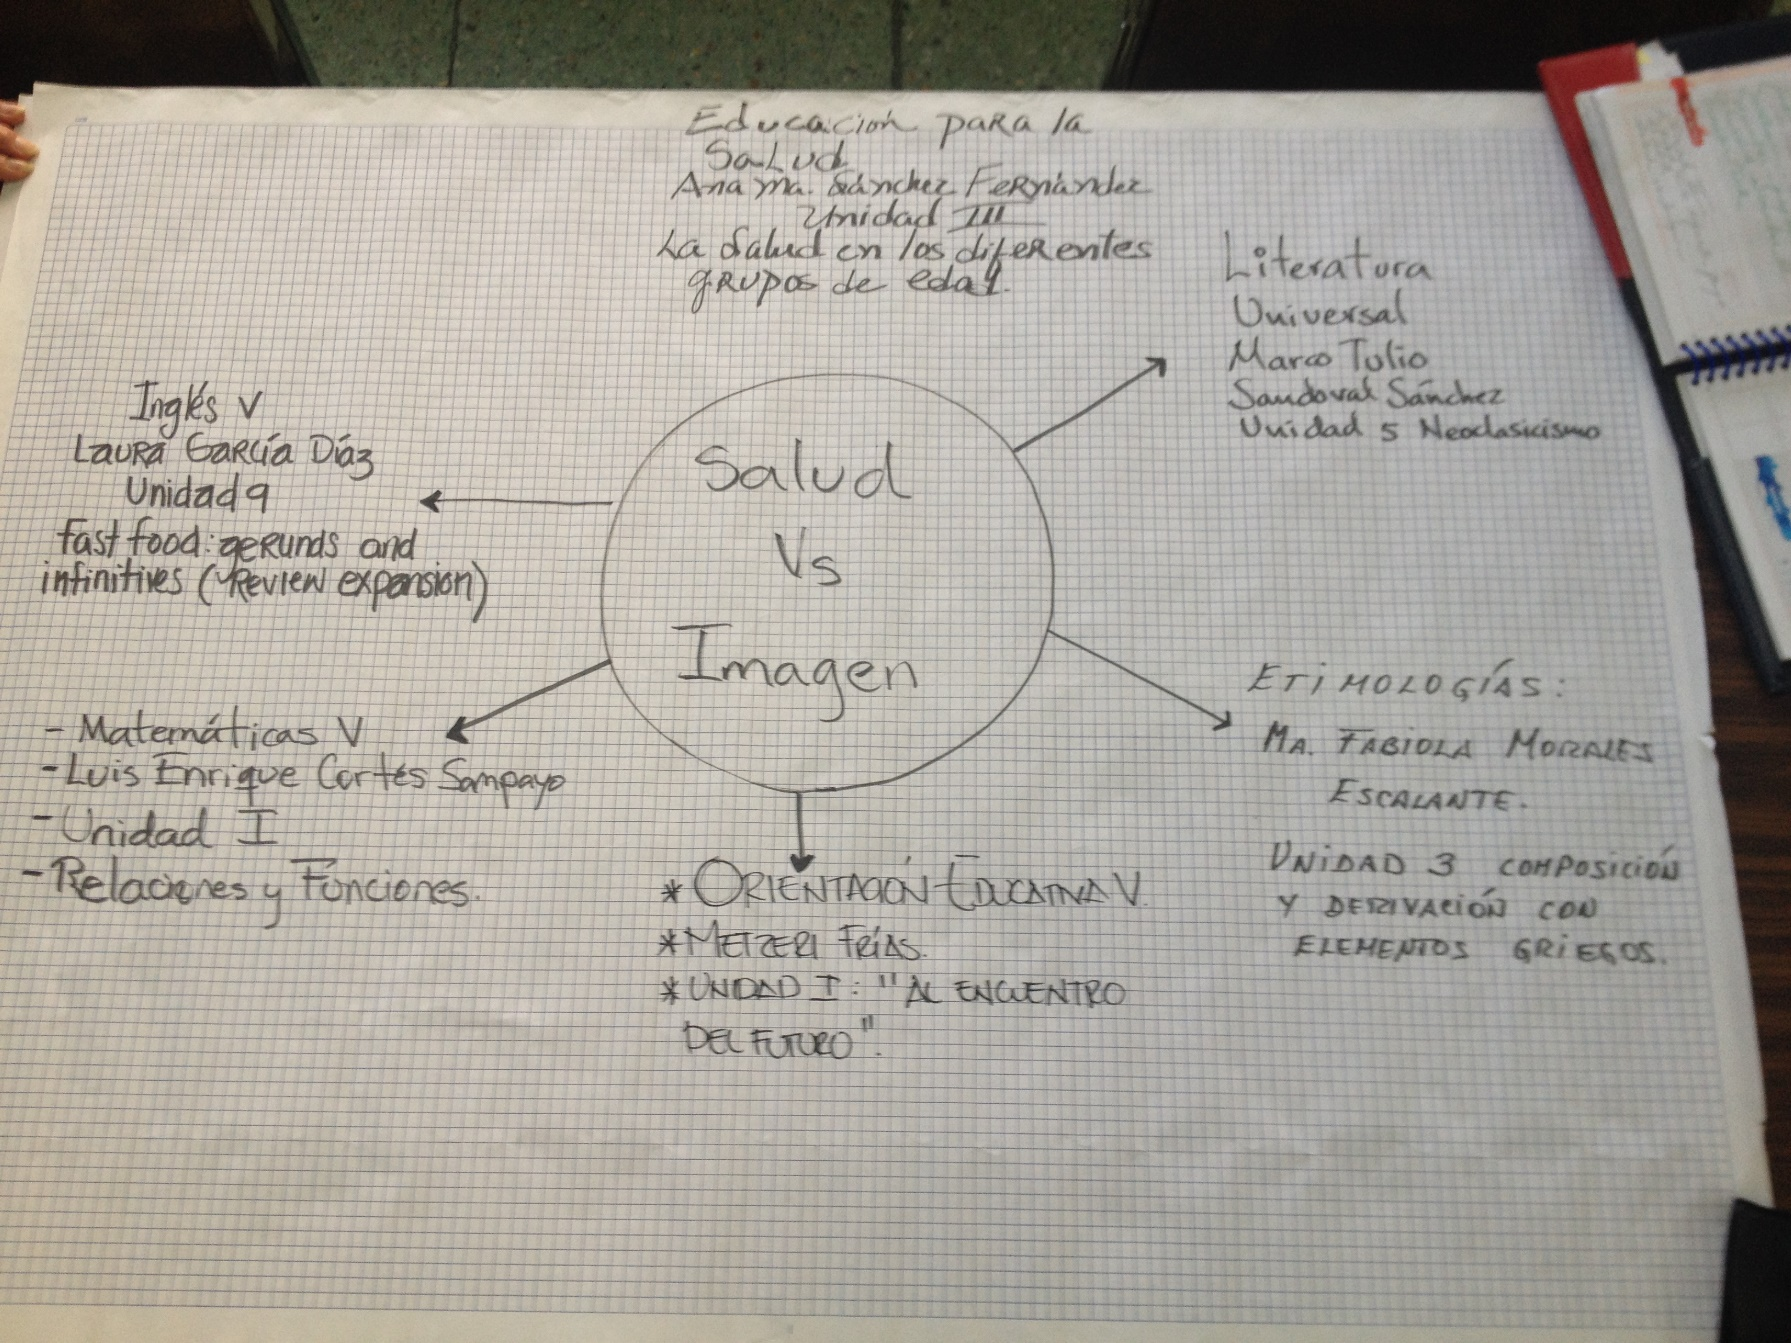 Educación para la
Salud
Ana Ma. Sánchez Fernández
Unidad III
La Salud en los diferentes
grupos de edad.
Literatura
Universal
Marco Tulio
Sandoval Sánchez
Unidad 5 Neoclasicismo
Inglés V
Laura García Díaz
Unidad 9
Fast food: gerunds and
infinitives (Review expansion)
Salud
Vs
Imagen
ETIMOLOGÍAS:
MA. FABIOLA MORALES
ESCALANTE.
UNIDAD 3 COMPOSICIÓN
Y DERIVACIÓN CON
ELEMENTOS GRIEGOS.
- Matemáticas V
- Luis Enrique Cortés Sampayo
- Unidad I
- Relaciones y Funciones.
* ORIENTACIÓN EDUCATIVA V.
* METZERI FRÍAS.
* UNIDAD I: "AL ENCUENTRO
DEL FUTURO".